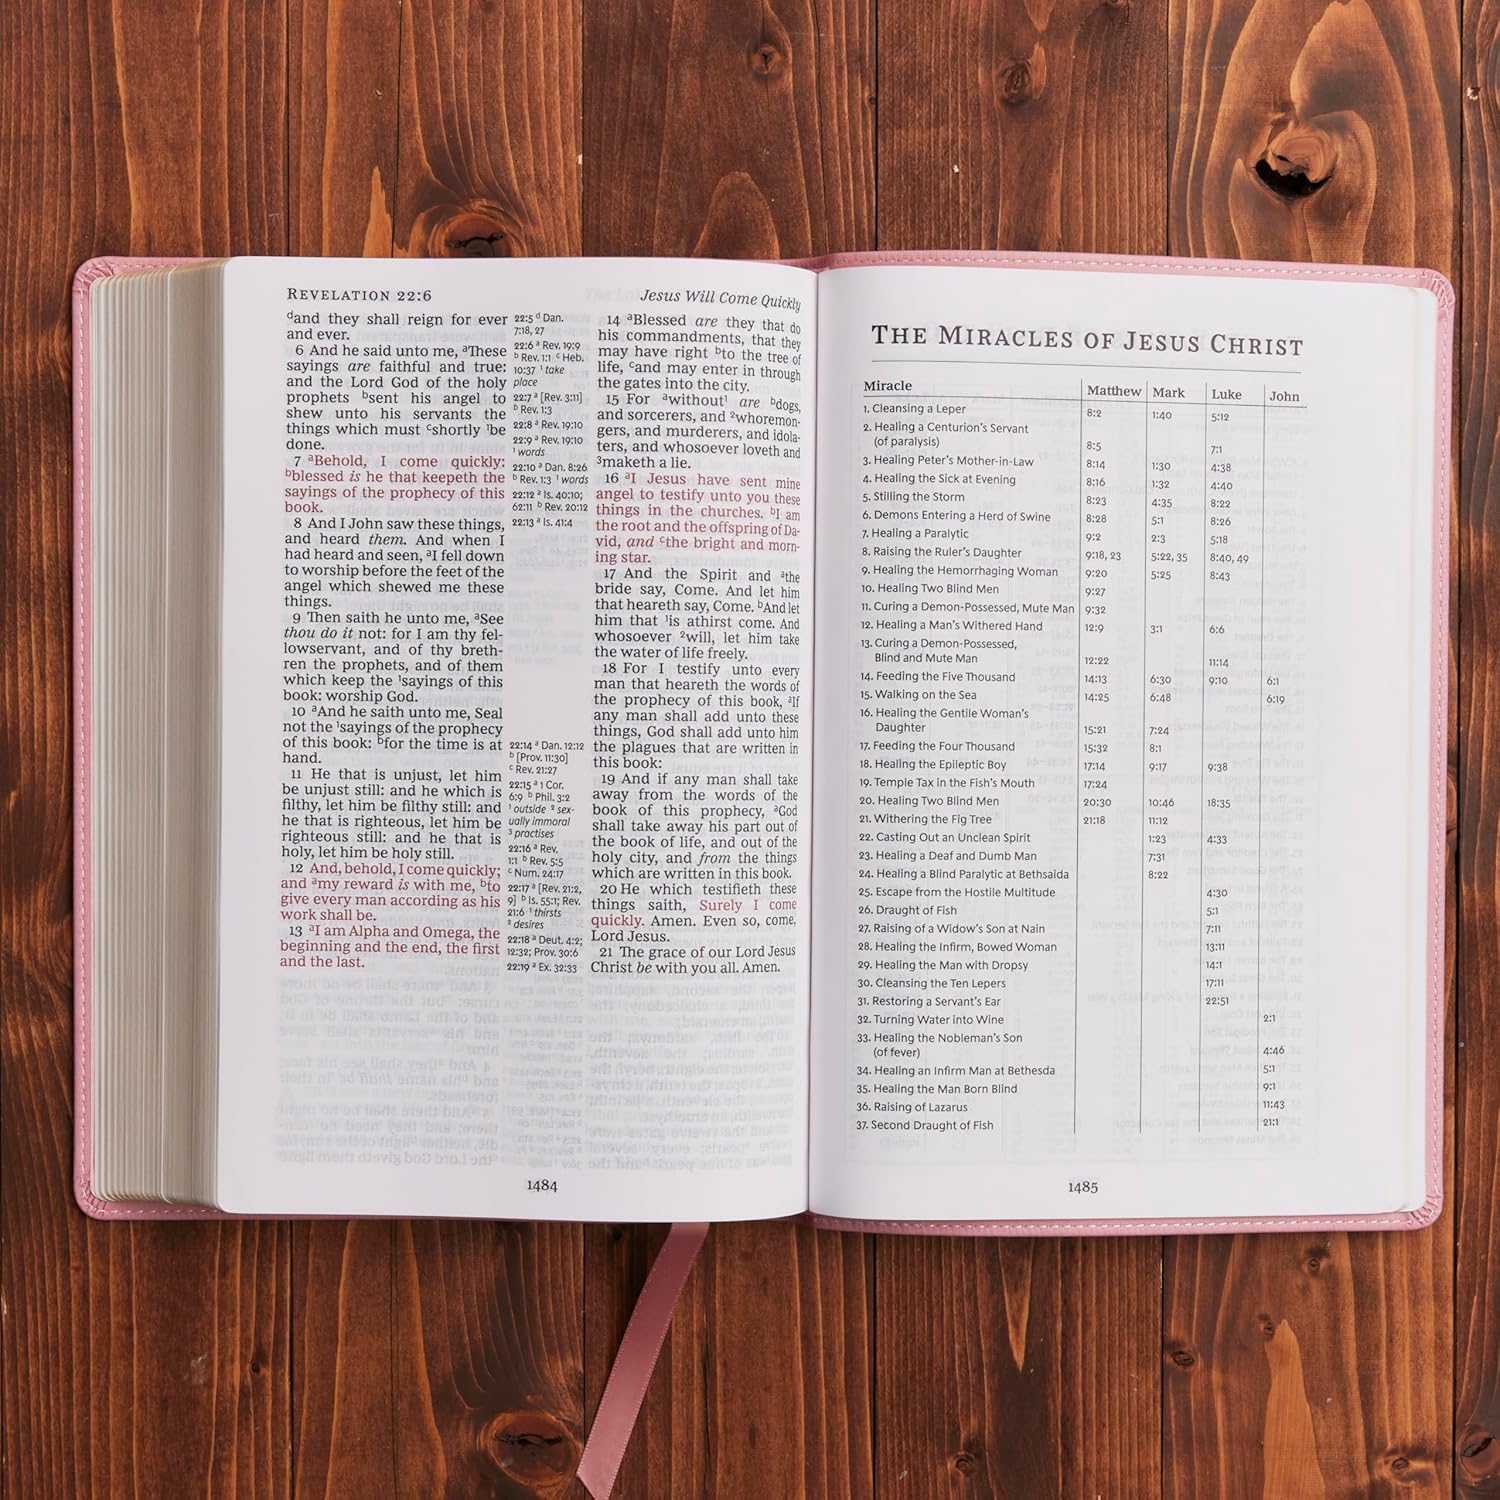 REVELATION 22:6
ᵈand they shall reign for ever
and ever.
6 And he said unto me, ᵃThese
sayings are faithful and true:
and the Lord God of the holy
prophets ᵇsent his angel to
shew unto his servants the
things which must ᶜshortly ¹be
done.
7 ᵃBehold, I come quickly:
ᵇblessed is he that keepeth the
sayings of the prophecy of this
book.
8 And I John saw these things,
and heard them. And when I
had heard and seen, ᵃI fell down
to worship before the feet of the
angel which shewed me these
things.
9 Then saith he unto me, ᵃSee
thou do it not: for I am thy fel-
lowservant, and of thy breth-
ren the prophets, and of them
which keep the ¹sayings of this
book: worship God.
10 ᵃAnd he saith unto me, Seal
not the ¹sayings of the prophecy
of this book: ᵇfor the time is at
hand.
11 He that is unjust, let him
be unjust still: and he which is
filthy, let him be filthy still: and
he that is righteous, let him be
righteous still: and he that is
holy, let him be holy still.
12 And, behold, I come quickly;
and ᵃmy reward is with me, ᵇto
give every man according as his
work shall be.
13 ᵃI am Alpha and Omega, the
beginning and the end, the first
and the last.
22:5 ᵈ Dan.
7:18, 27
22:6 ᵃ Rev. 19:9
ᵇ Rev. 1:1 ᶜ Heb.
10:37 ¹ take
place
22:7 ᵃ [Rev. 3:11]
ᵇ Rev. 1:3
22:8 ᵃ Rev. 19:10
22:9 ᵃ Rev. 19:10
¹ words
22:10 ᵃ Dan. 8:26
ᵇ Rev. 1:3 ¹ words
22:12 ᵃ Is. 40:10;
62:11 ᵇ Rev. 20:12
22:13 ᵃ Is. 41:4
22:14 ᵃ Dan. 12:12
ᵇ [Prov. 11:30]
ᶜ Rev. 21:27
22:15 ᵃ 1 Cor.
6:9 ᵇ Phil. 3:2
¹ outside ² sex-
ually immoral
³ practises
22:16 ᵃ Rev.
1:1 ᵇ Rev. 5:5
ᶜ Num. 24:17
22:17 ᵃ [Rev. 21:2,
9] ᵇ Is. 55:1; Rev.
21:6 ¹ thirsts
² desires
22:18 ᵃ Deut. 4:2;
12:32; Prov. 30:6
22:19 ᵃ Ex. 32:33
Jesus Will Come Quickly
14 ᵃBlessed are they that do
his commandments, that they
may have right ᵇto the tree of
life, ᶜand may enter in through
the gates into the city.
15 For ᵃwithout¹ are ᵇdogs,
and sorcerers, and ²whoremon-
gers, and murderers, and idola-
ters, and whosoever loveth and
³maketh a lie.
16 ᵃI Jesus have sent mine
angel to testify unto you these
things in the churches. ᵇI am
the root and the offspring of Da-
vid, and ᶜthe bright and morn-
ing star.
17 And the Spirit and ᵃthe
bride say, Come. And let him
that heareth say, Come. ᵇAnd let
him that ¹is athirst come. And
whosoever ²will, let him take
the water of life freely.
18 For I testify unto every
man that heareth the words of
the prophecy of this book, ᵃIf
any man shall add unto these
things, God shall add unto him
the plagues that are written in
this book:
19 And if any man shall take
away from the words of the
book of this prophecy, ᵃGod
shall take away his part out of
the book of life, and out of the
holy city, and from the things
which are written in this book.
20 He which testifieth these
things saith, Surely I come
quickly. Amen. Even so, come,
Lord Jesus.
21 The grace of our Lord Jesus
Christ be with you all. Amen.
1484
THE MIRACLES OF JESUS CHRIST
Miracle Matthew Mark Luke John
1. Cleansing a Leper 8:2 1:40 5:12
2. Healing a Centurion's Servant
(of paralysis) 8:5 7:1
3. Healing Peter's Mother-in-Law 8:14 1:30 4:38
4. Healing the Sick at Evening 8:16 1:32 4:40
5. Stilling the Storm 8:23 4:35 8:22
6. Demons Entering a Herd of Swine 8:28 5:1 8:26
7. Healing a Paralytic 9:2 2:3 5:18
8. Raising the Ruler's Daughter 9:18, 23 5:22, 35 8:40, 49
9. Healing the Hemorrhaging Woman 9:20 5:25 8:43
10. Healing Two Blind Men 9:27
11. Curing a Demon-Possessed, Mute Man 9:32
12. Healing a Man's Withered Hand 12:9 3:1 6:6
13. Curing a Demon-Possessed,
Blind and Mute Man 12:22 11:14
14. Feeding the Five Thousand 14:13 6:30 9:10 6:1
15. Walking on the Sea 14:25 6:48 6:19
16. Healing the Gentile Woman's
Daughter 15:21 7:24
17. Feeding the Four Thousand 15:32 8:1
18. Healing the Epileptic Boy 17:14 9:17 9:38
19. Temple Tax in the Fish's Mouth 17:24
20. Healing Two Blind Men 20:30 10:46 18:35
21. Withering the Fig Tree 21:18 11:12
22. Casting Out an Unclean Spirit 1:23 4:33
23. Healing a Deaf and Dumb Man 7:31
24. Healing a Blind Paralytic at Bethsaida 8:22
25. Escape from the Hostile Multitude 4:30
26. Draught of Fish 5:1
27. Raising of a Widow's Son at Nain 7:11
28. Healing the Infirm, Bowed Woman 13:11
29. Healing the Man with Dropsy 14:1
30. Cleansing the Ten Lepers 17:11
31. Restoring a Servant's Ear 22:51
32. Turning Water into Wine 2:1
33. Healing the Nobleman's Son
(of fever) 4:46
34. Healing an Infirm Man at Bethesda 5:1
35. Healing the Man Born Blind 9:1
36. Raising of Lazarus 11:43
37. Second Draught of Fish 21:1
1485